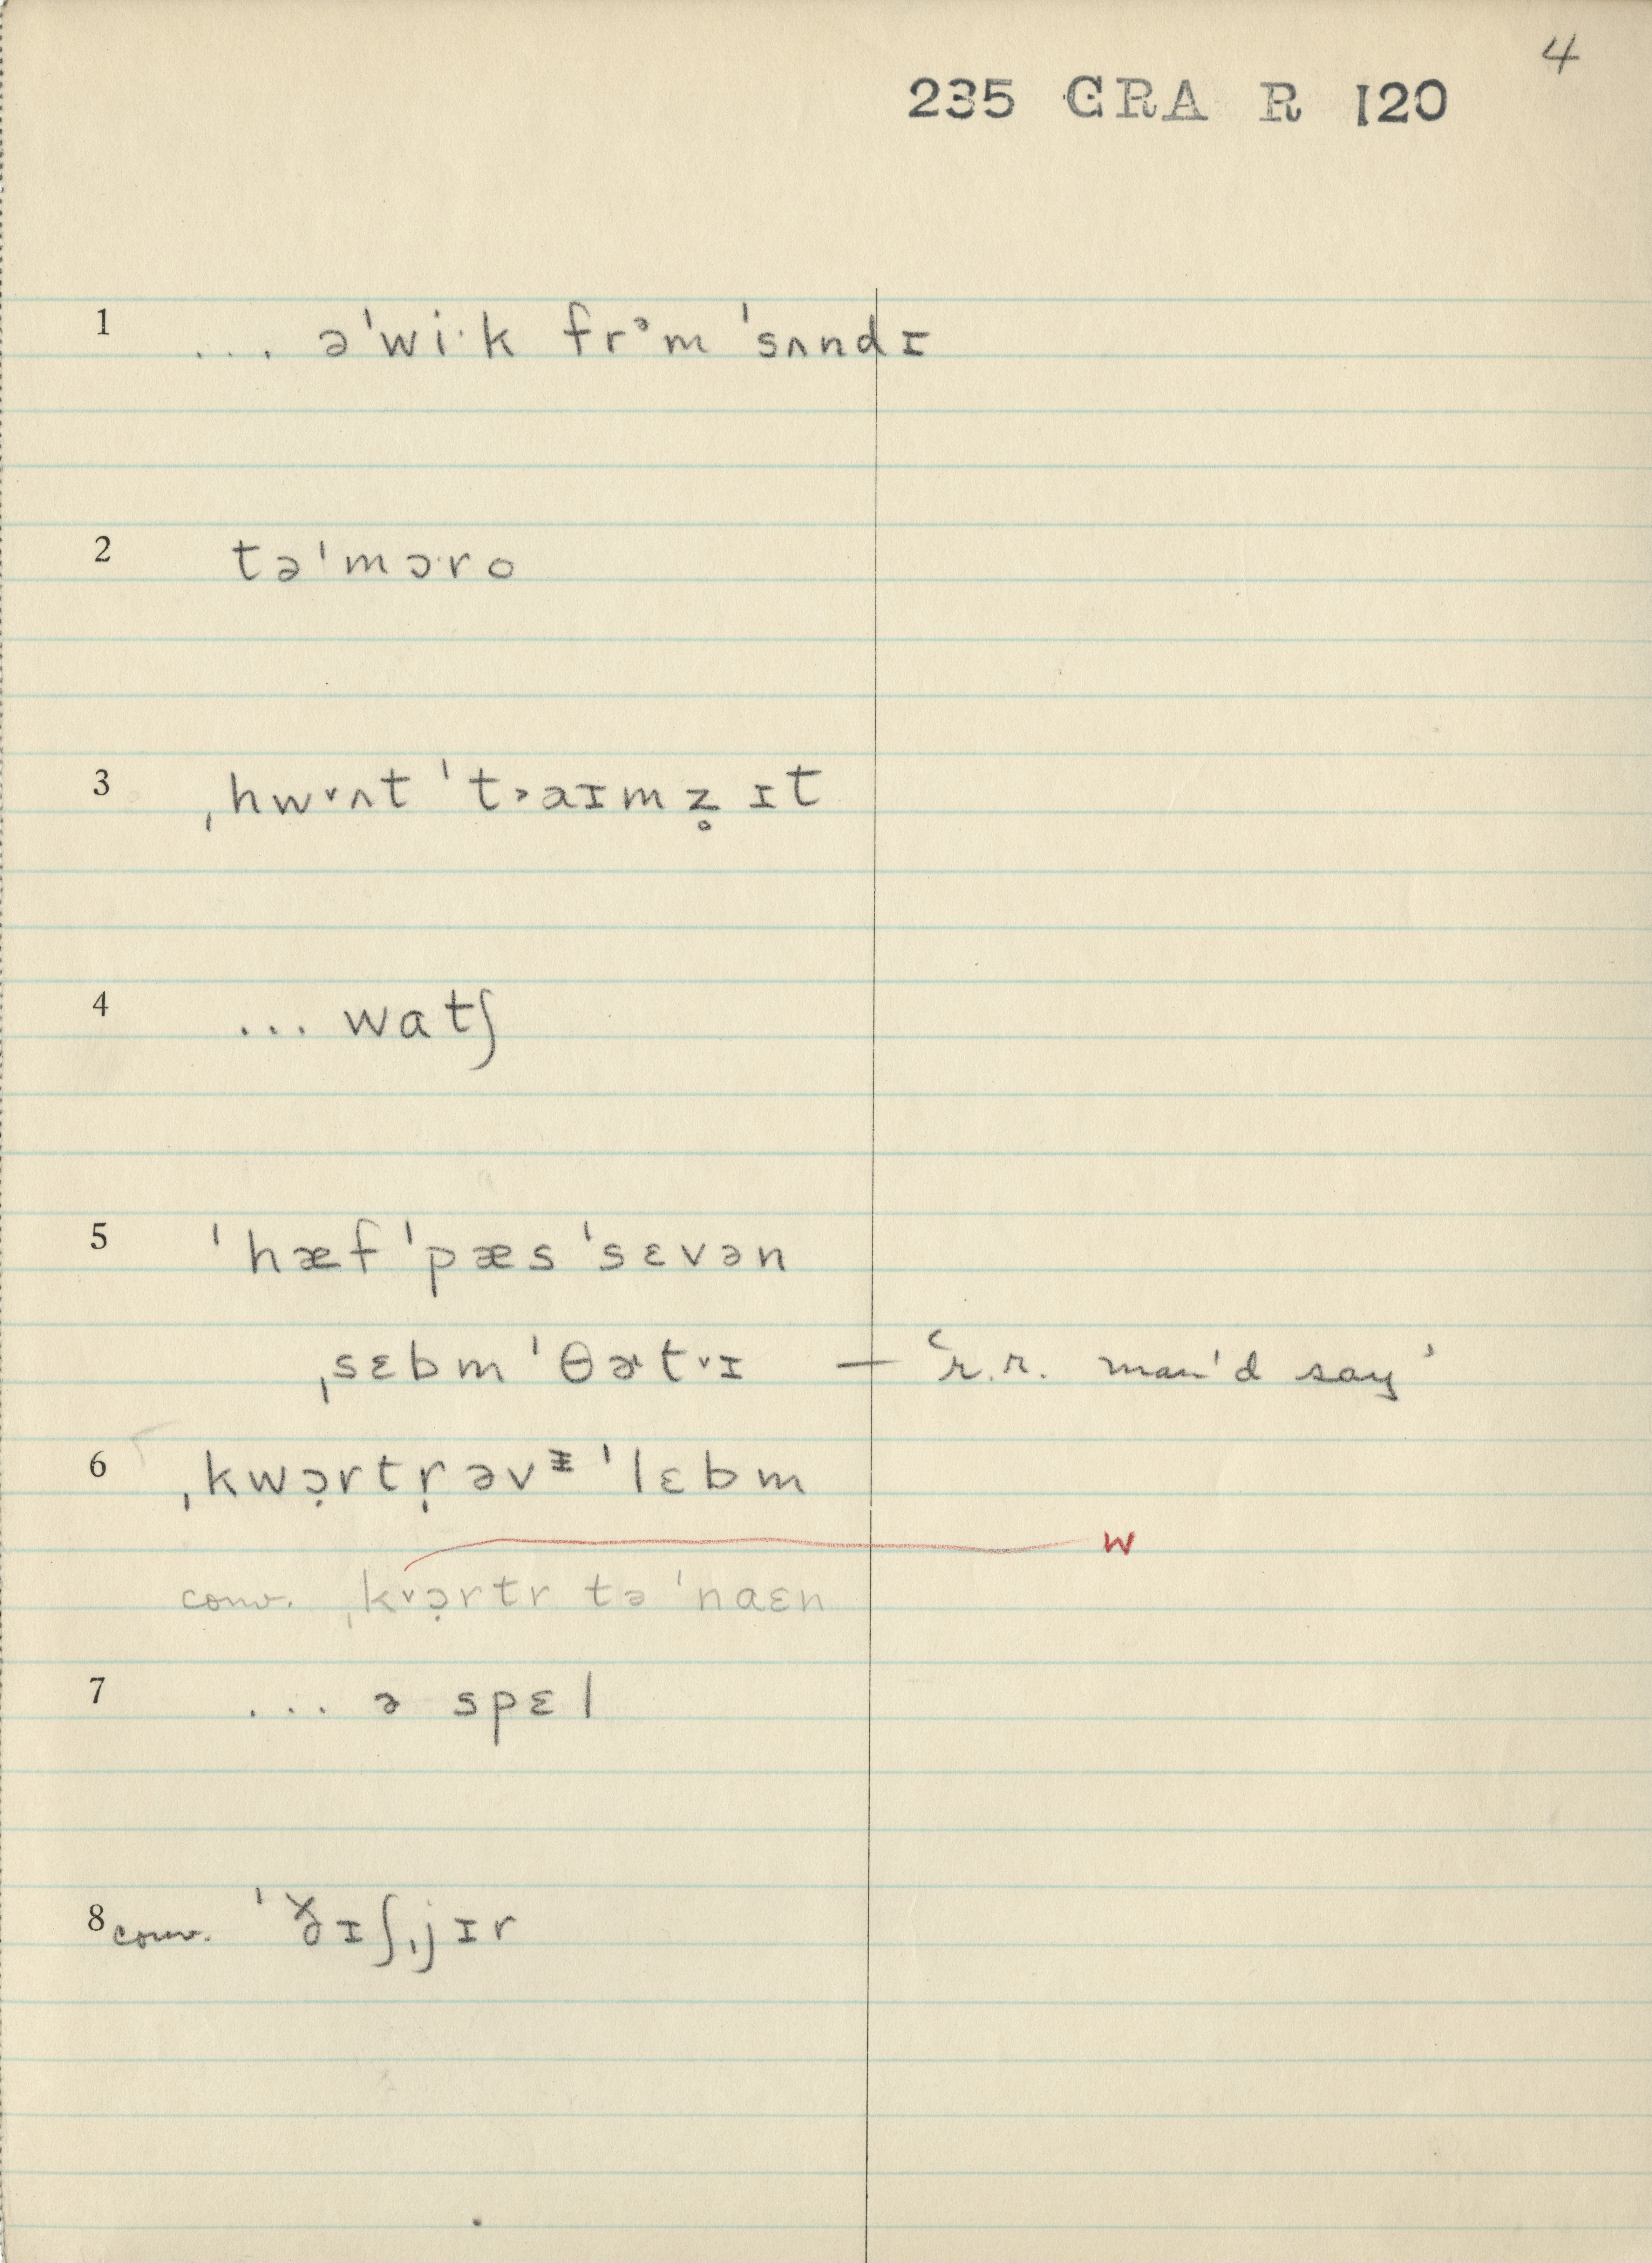 4
235 CRA R 120
1 ... əˈwi·k frᵊm ˈsʌndɪ
2 təˈmɔ·ro
3 ˌhw˅ʌt ˈt˃aɪmz̥ ɪt
4 ... watʃ
5 ˈhæf ˈpæs ˈsɛvən
ˌsɛbm ˈθɚt˅ɪ — ‘r.r. man'd say’
6 ˌkwɔ̣rtṛ əvᵻ ˈlɛbm
w
conv. ˌk˅ɔ̣rtr tə ˈnaɛn
7 ... ə spɛl
8 conv. ˈɪʃˌjɪr